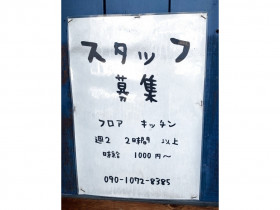 スタッフ
募集
フロア キッチン
週2 2時間 以上
時給 1000円〜
090-1072-8385